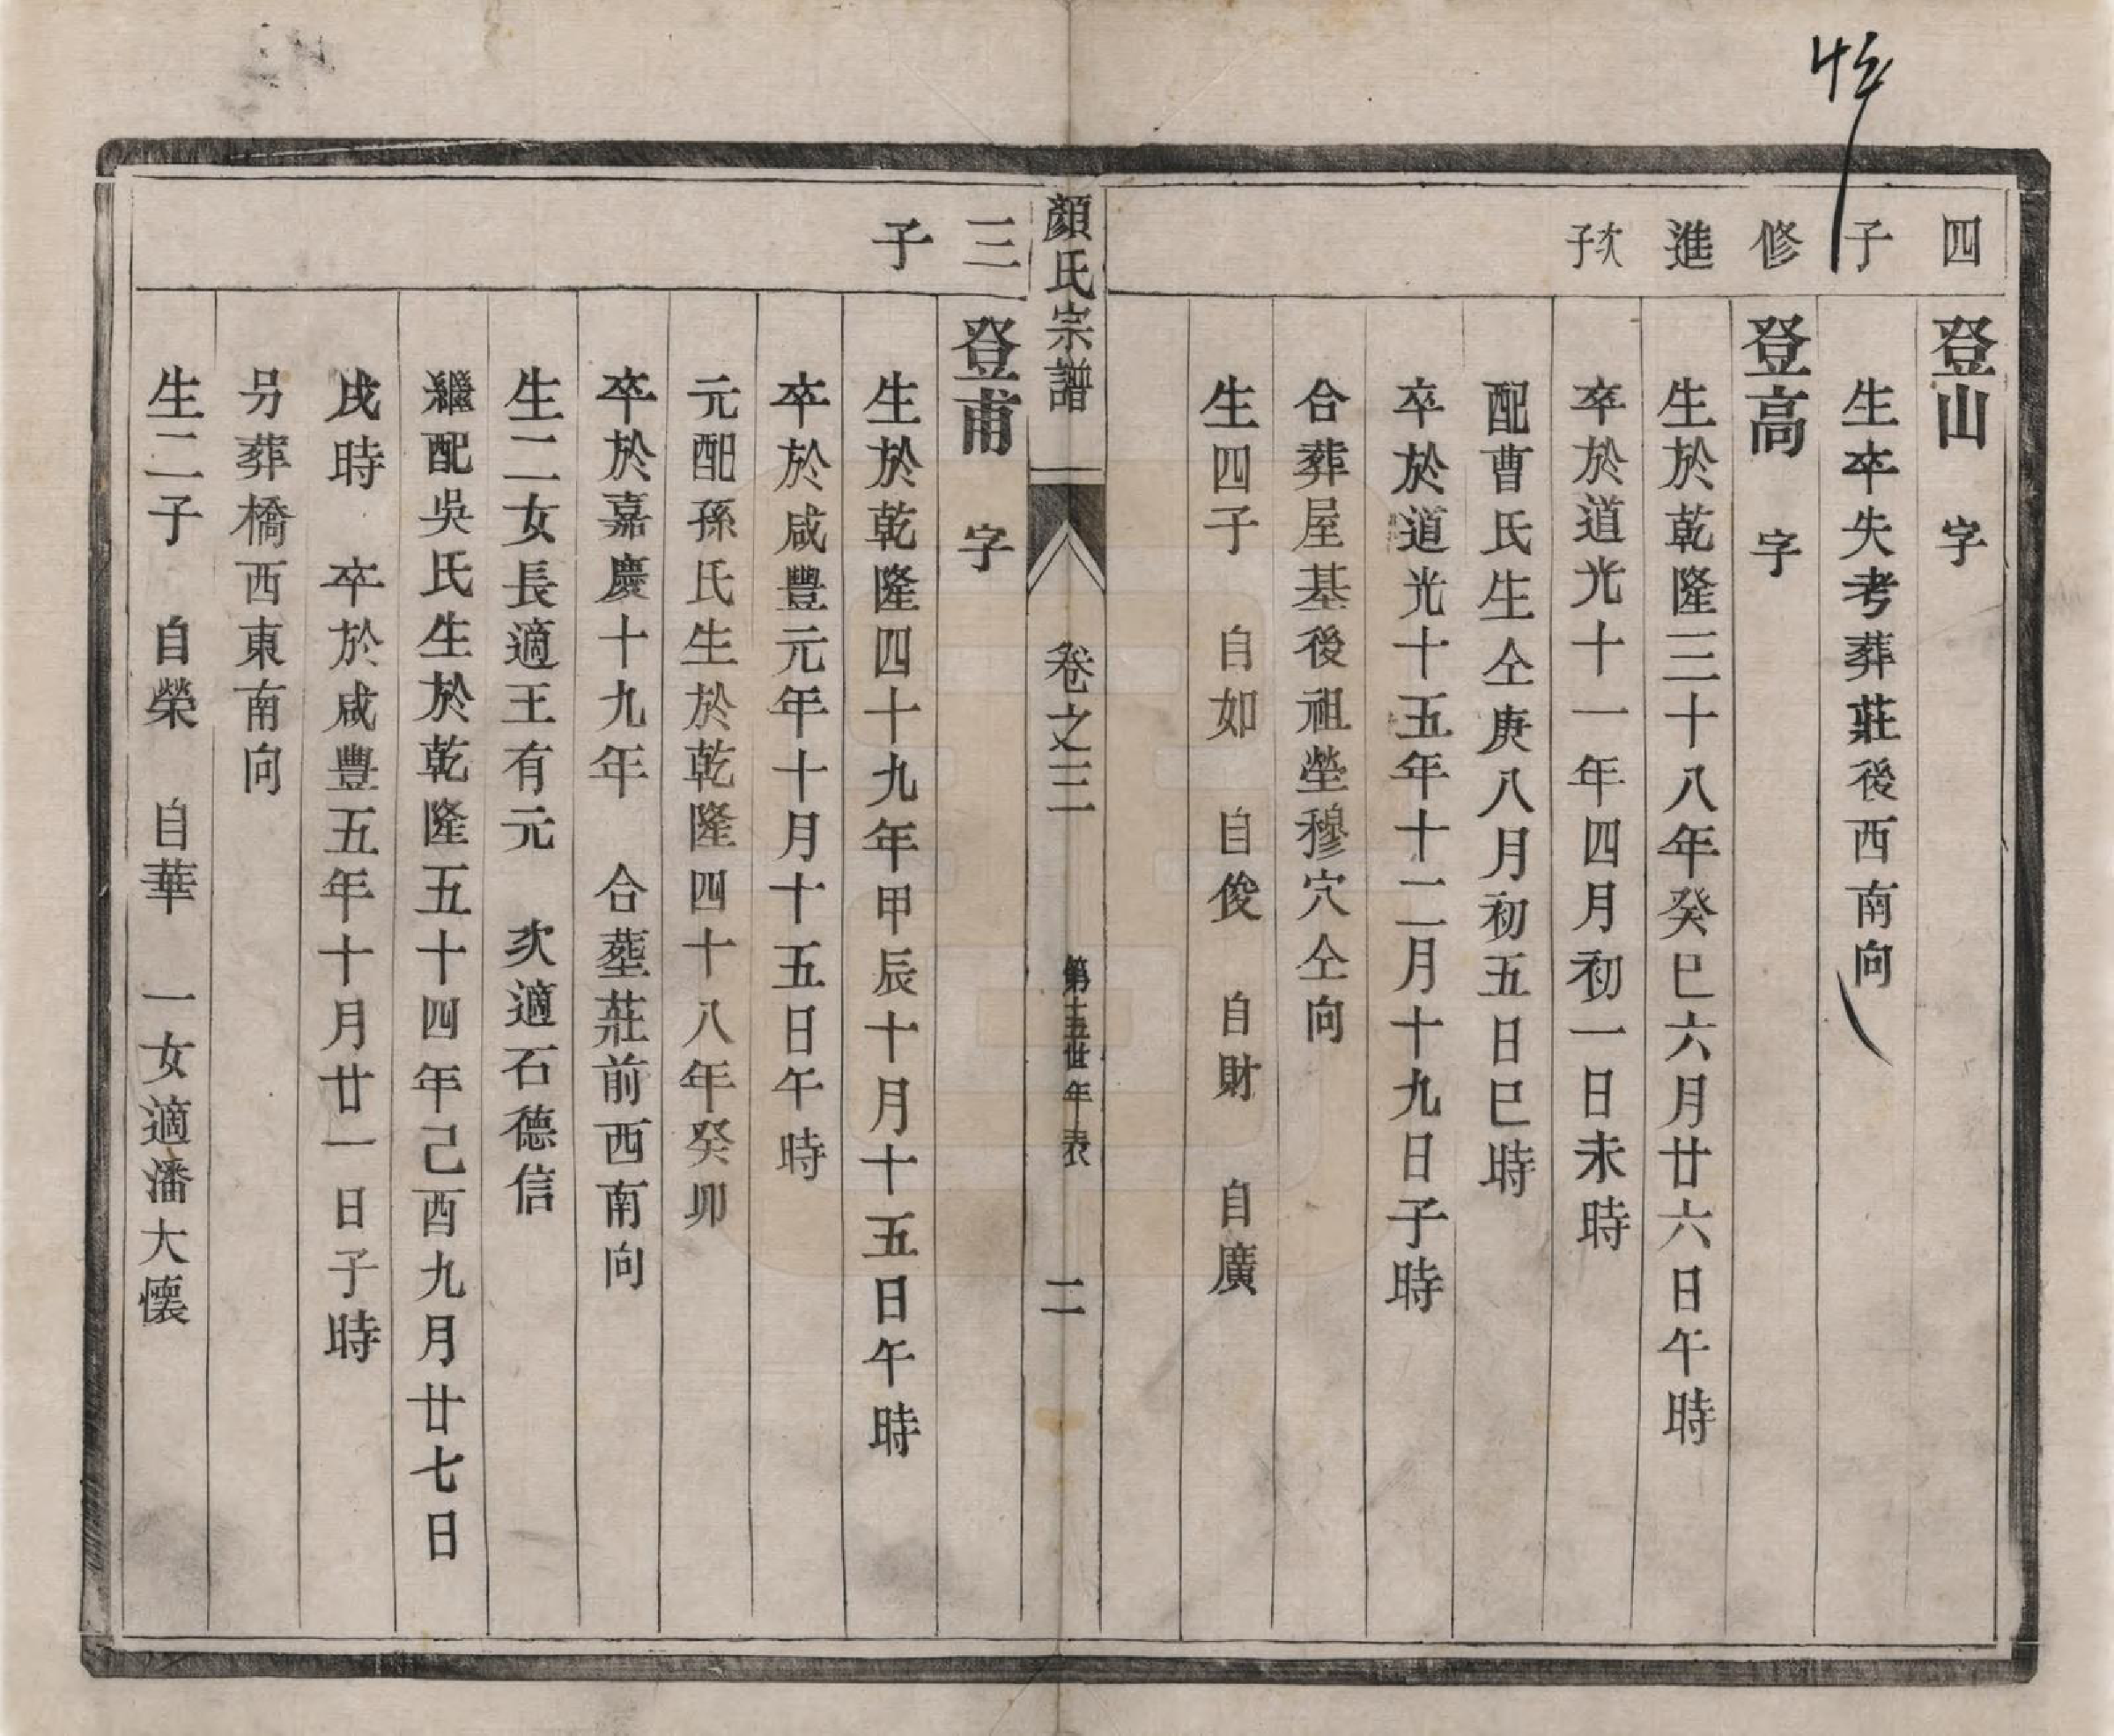 四子
登山　字
生卒失考葬莊後西南向
修進次子
登高　字
生於乾隆三十八年癸巳六月廿六日午時
卒於道光十一年四月初一日未時
配曹氏生仝庚八月初五日巳時
卒於道光十五年十二月十九日子時
合葬屋基後祖塋穆穴仝向
生四子　自如　自俊　自財　自廣
顏氏宗譜　卷之三　第十五世年表　二
三子
登甫　字
生於乾隆四十九年甲辰十月十五日午時
卒於咸豐元年十月十五日午時
元配孫氏生於乾隆四十八年癸卯
卒於嘉慶十九年　合葬莊前西南向
生二女長適王有元　次適石德信
繼配吳氏生於乾隆五十四年己酉九月廿七日
戌時　卒於咸豐五年十月廿一日子時
另葬橋西東南向
生二子　自榮　自華　一女適潘大懷